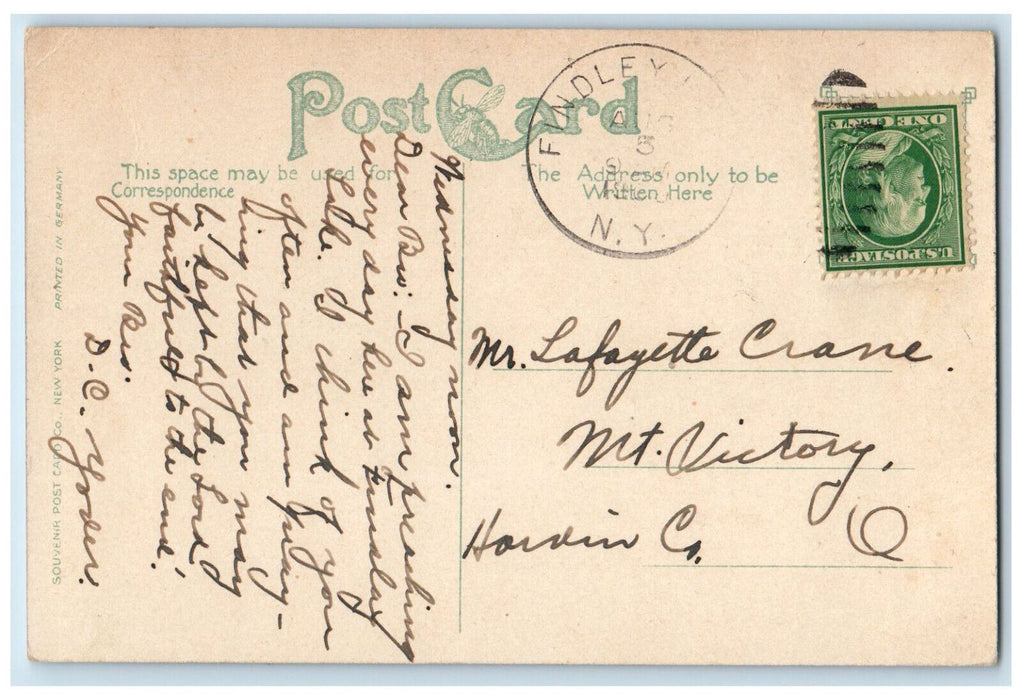 Post Card
This space may be used for
Correspondence
The Address only to be
Written Here
FINDLEY
N.Y.
AUG
5
ONE CENT
U.S. POSTAGE
SOUVENIR POST CARD CO., NEW YORK PRINTED IN GERMANY
Wednesday noon.
Dear Bro: - I am preaching
every day here at Findlay
Lake. I think of you
often and am pray-
ing that you may
be kept by the Lord,
faithful to the end.
Your Bro.
D. C. Yoder.
Mr. Lafayette Crane.
Mt. Victory,
Hardin Co. O